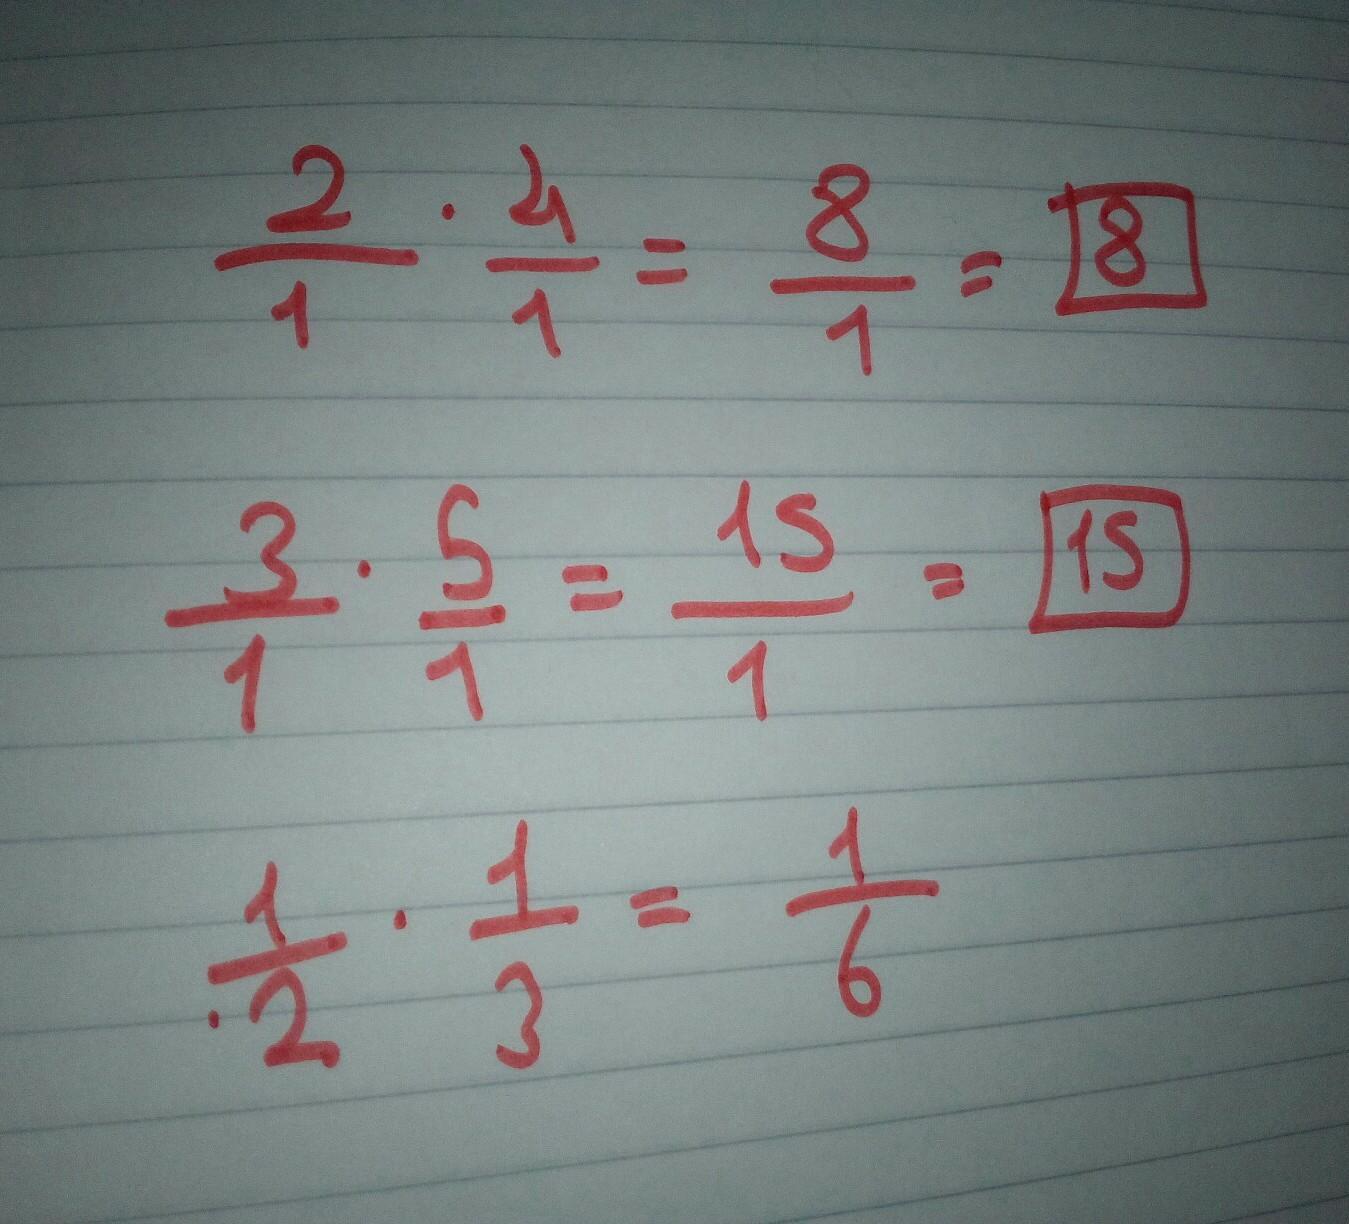 2/1 · 4/1 = 8/1 = 8
3/1 · 5/1 = 15/1 = 15
1/2 · 1/3 = 1/6